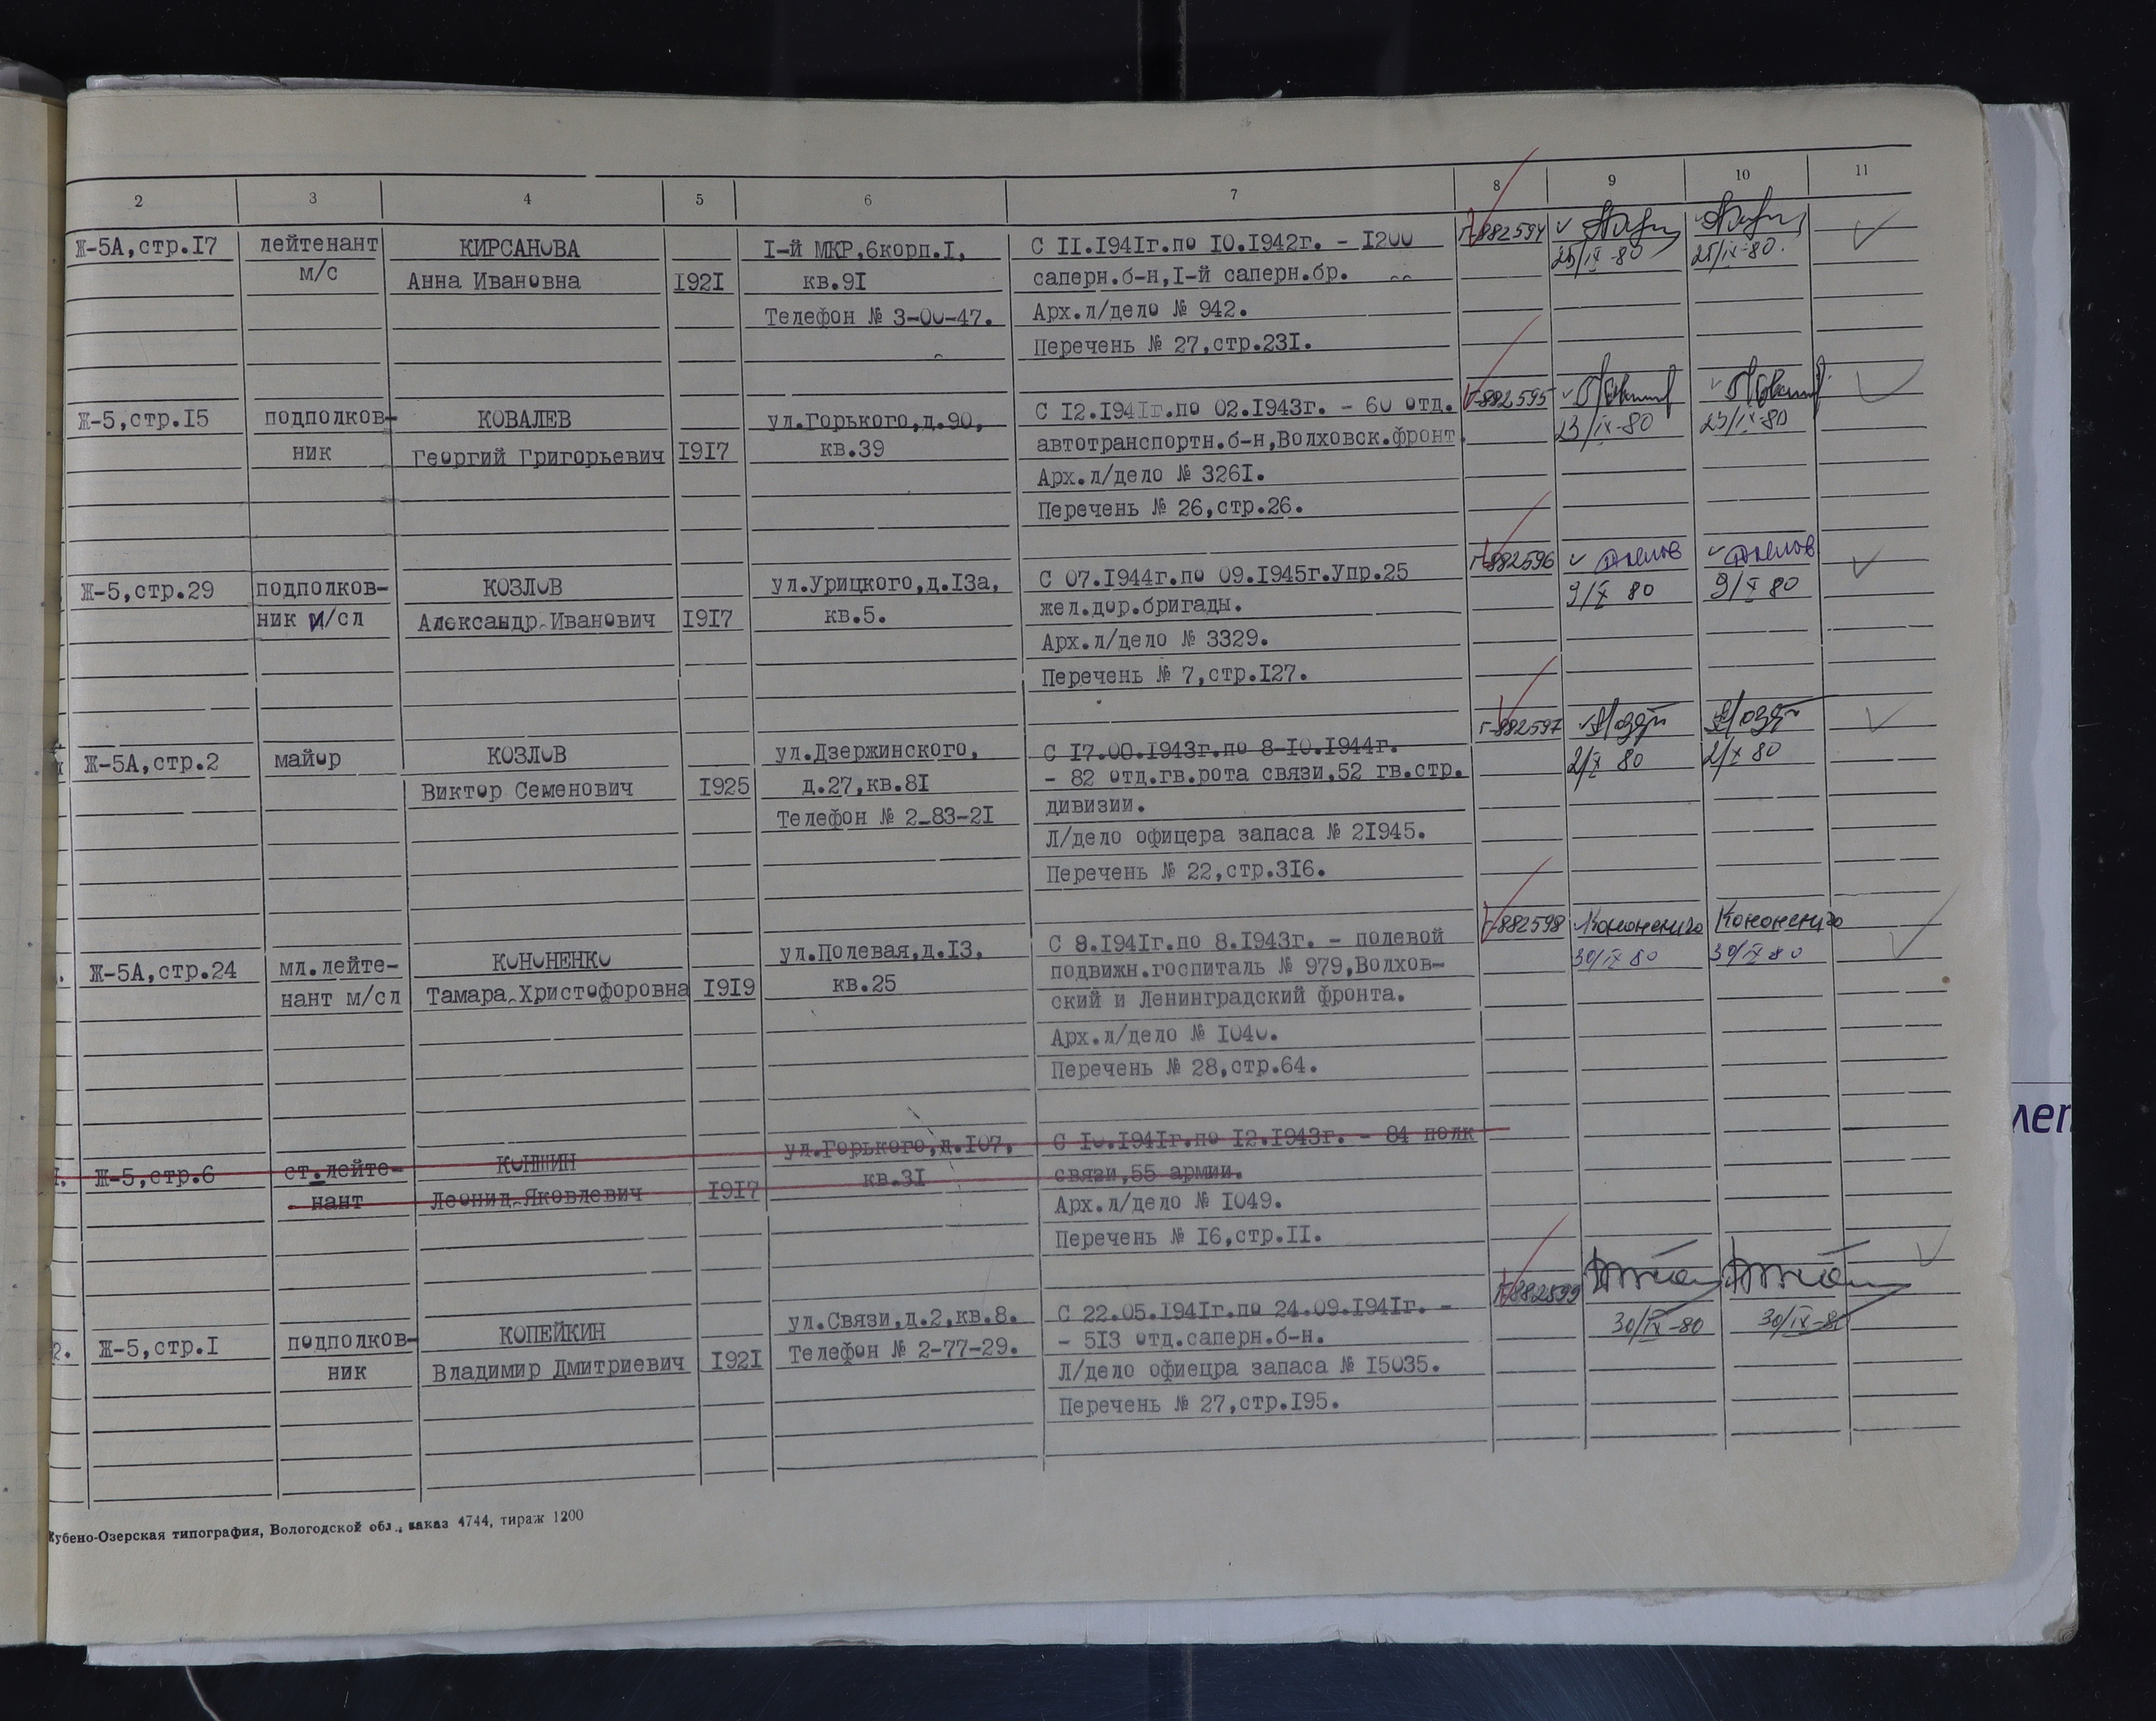 2 3 4 5 6 7 8 9 10 11
Ж-5А,стр.17 лейтенант КИРСАНОВА I-й МКР,6корп.I, С II.1941г.по IO.1942г. - I200 Г-882594
м/с Анна Ивановна 1921 кв.9I саперн.б-н,I-й саперн.бр. 25/IX-80 25/IX-80.
Телефон № 3-00-47. Арх.л/дело № 942.
Перечень № 27,стр.231.
Ж-5,стр.15 подполков- КОВАЛЕВ ул.Горького,д.90, С 12.1941г.по 02.1943г. - 60 отд. Г-882595
ник Георгий Григорьевич 1917 кв.39 автотранспортн.б-н,Волховск.фронт. 23/IX-80 23/IX-80
Арх.л/дело № 3261.
Перечень № 26,стр.26.
Ж-5,стр.29 подполков- КОЗЛОВ ул.Урицкого,д.13а, С 07.1944г.по 09.1945г.Упр.25 Г-882596
ник и/сл Александр Иванович 1917 кв.5. жел.дор.бригады. 9/X 80 9/X 80
Арх.л/дело № 3329.
Перечень № 7,стр.127.
Ж-5А,стр.2 майор КОЗЛОВ ул.Дзержинского, С 17.00.1943г.по 8-10.1944г. Г-882597
Виктор Семенович 1925 д.27,кв.81 - 82 отд.гв.рота связи,52 гв.стр. 2/X 80 2/X 80
Телефон № 2-83-21 дивизии.
Л/дело офицера запаса № 21945.
Перечень № 22,стр.316.
Ж-5А,стр.24 мл.лейте- КОНОНЕНКО ул.Полевая,д.13, С 8.1941г.по 8.1943г. - полевой Г-882598 Кононенко Кононенко
нант м/сл Тамара Христофоровна 1919 кв.25 подвижн.госпиталь № 979,Волхов- 30/IX 80 30/IX 80
ский и Ленинградский фронта.
Арх.л/дело № 1040.
Перечень № 28,стр.64.
Ж-5,стр.6 ст.лейте- КОНШИН ул.Горького,д.107, С 10.1941г.по 12.1943г. - 84 полк
нант Леонид Яковлевич 1917 кв.31 связи,55 армии.
Арх.л/дело № 1049.
Перечень № 16,стр.11.
2. Ж-5,стр.1 подполков- КОПЕЙКИН ул.Связи,д.2,кв.8. С 22.05.1941г.по 24.09.1941г. - Г-882599
ник Владимир Дмитриевич 1921 Телефон № 2-77-29. - 513 отд.саперн.б-н. 30/IX-80 30/IX-80
Л/дело офиецра запаса № 15035.
Перечень № 27,стр.195.
Кубено-Озерская типография, Вологодской обл., заказ 4744, тираж 1200